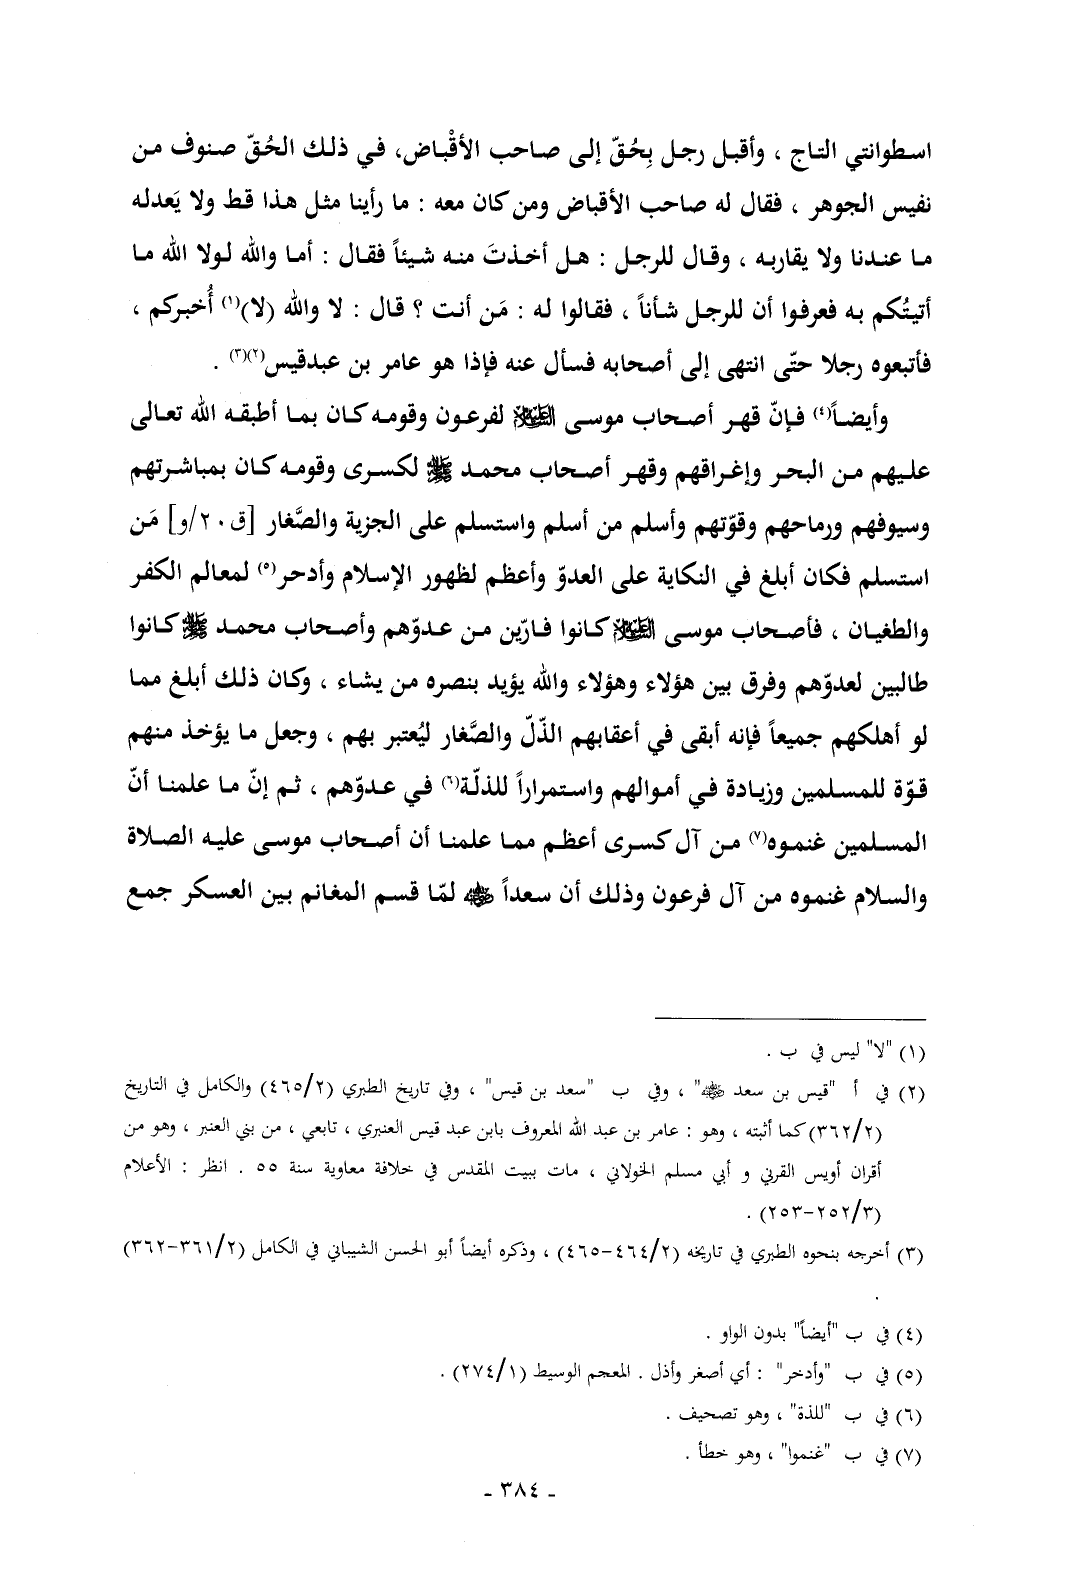 اسطوانتي التاج ، وأقبل رجل بِحُقّ إلى صاحب الأقْباض، في ذلك الحُقّ صنوف من
نفيس الجوهر ، فقال له صاحب الأقباض ومن كان معه : ما رأينا مثل هذا قط ولا يَعدله
ما عندنا ولا يقاربه ، وقال للرجل : هل أخذتَ منه شيئاً فقال : أما والله لولا الله ما
أتيتُكم به فعرفوا أن للرجل شأناً ، فقالوا له : مَن أنت ؟ قال : لا والله (لا)(١) أُخبركم ،
فأتبعوه رجلا حتّى انتهى إلى أصحابه فسأل عنه فإذا هو عامر بن عبدقيس(٢)(٣) .
وأيضاً(٤) فإنّ قهر أصحاب موسى عليه السلام لفرعون وقومه كان بما أطبقه الله تعالى
عليهم من البحر وإغراقهم وقهر أصحاب محمد ﷺ لكسرى وقومه كان بمباشرتهم
وسيوفهم ورماحهم وقوّتهم وأسلم من أسلم واستسلم على الجزية والصَّغار [ق٢٠/و] مَن
استسلم فكان أبلغ في النكاية على العدوّ وأعظم لظهور الإسلام وأدحر(٥) لمعالم الكفر
والطغيان ، فأصحاب موسى عليه السلام كانوا فارّين من عدوّهم وأصحاب محمد ﷺ كانوا
طالبين لعدوّهم وفرق بين هؤلاء وهؤلاء والله يؤيد بنصره من يشاء ، وكان ذلك أبلغ مما
لو أهلكهم جميعاً فإنه أبقى في أعقابهم الذّلّ والصَّغار ليُعتبر بهم ، وجعل ما يؤخذ منهم
قوّة للمسلمين وزيادة في أموالهم واستمراراً للذلّة(٦) في عدوّهم ، ثم إنّ ما علمنا أنّ
المسلمين غنموه(٧) من آل كسرى أعظم مما علمنا أن أصحاب موسى عليه الصلاة
والسلام غنموه من آل فرعون وذلك أن سعداً رضي الله عنه لمّا قسم المغانم بين العسكر جمع
(١) "لا" ليس في ب .
(٢) في أ "قيس بن سعد رضي الله عنه" ، وفي ب "سعد بن قيس" ، وفي تاريخ الطبري (٤٦٥/٢) والكامل في التاريخ
(٣٦٢/٢) كما أثبته ، وهو : عامر بن عبد الله المعروف بابن عبد قيس العنبري ، تابعي ، من بني العنبر ، وهو من
أقران أويس القرني و أبي مسلم الخولاني ، مات ببيت المقدس في خلافة معاوية سنة ٥٥ . انظر : الأعلام
(٢٥٢/٣-٢٥٣) .
(٣) أخرجه بنحوه الطبري في تاريخه (٤٦٤/٢-٤٦٥) ، وذكره أيضاً أبو الحسن الشيباني في الكامل (٣٦١/٢-٣٦٢)
.
(٤) في ب "أيضاً" بدون الواو .
(٥) في ب "وأدخر" : أي أصغر وأذل . المعجم الوسيط (٢٧٤/١) .
(٦) في ب "للذة" ، وهو تصحيف .
(٧) في ب "غنموا" ، وهو خطأ .
- ٣٨٤ -